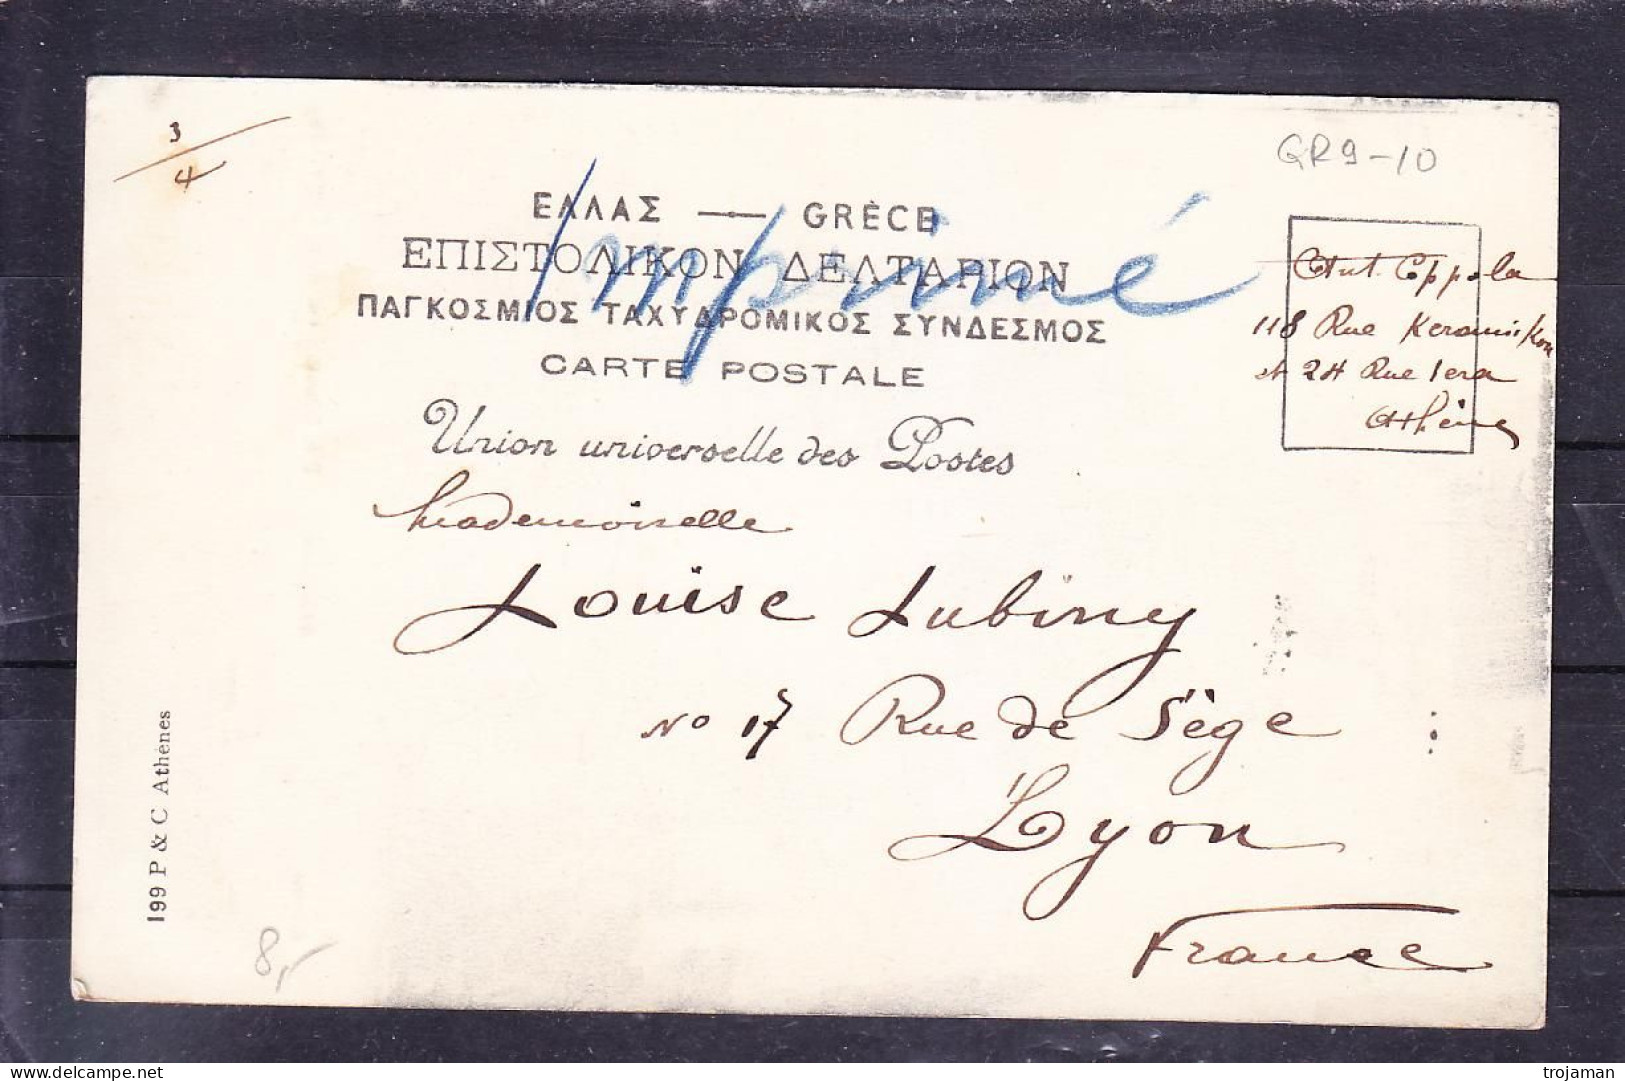 3
4
GR9-10
ΕΛΛΑΣ — GRÈCE
Imprimé
ΕΠΙΣΤΟΛΙΚΟΝ ΔΕΛΤΑΡΙΟΝ
ΠΑΓΚΟΣΜΙΟΣ ΤΑΧΥΔΡΟΜΙΚΟΣ ΣΥΝΔΕΣΜΟΣ
CARTE POSTALE
Union universelle des Postes
Ant. Coppola
118 Rue Keramikon
et 24 Rue Iera
Athènes
Mademoiselle
Louise Lubiny
No 17 Rue de Sège
Lyon
France
199 P & C Athènes
8,-
delcampe.net
trojaman